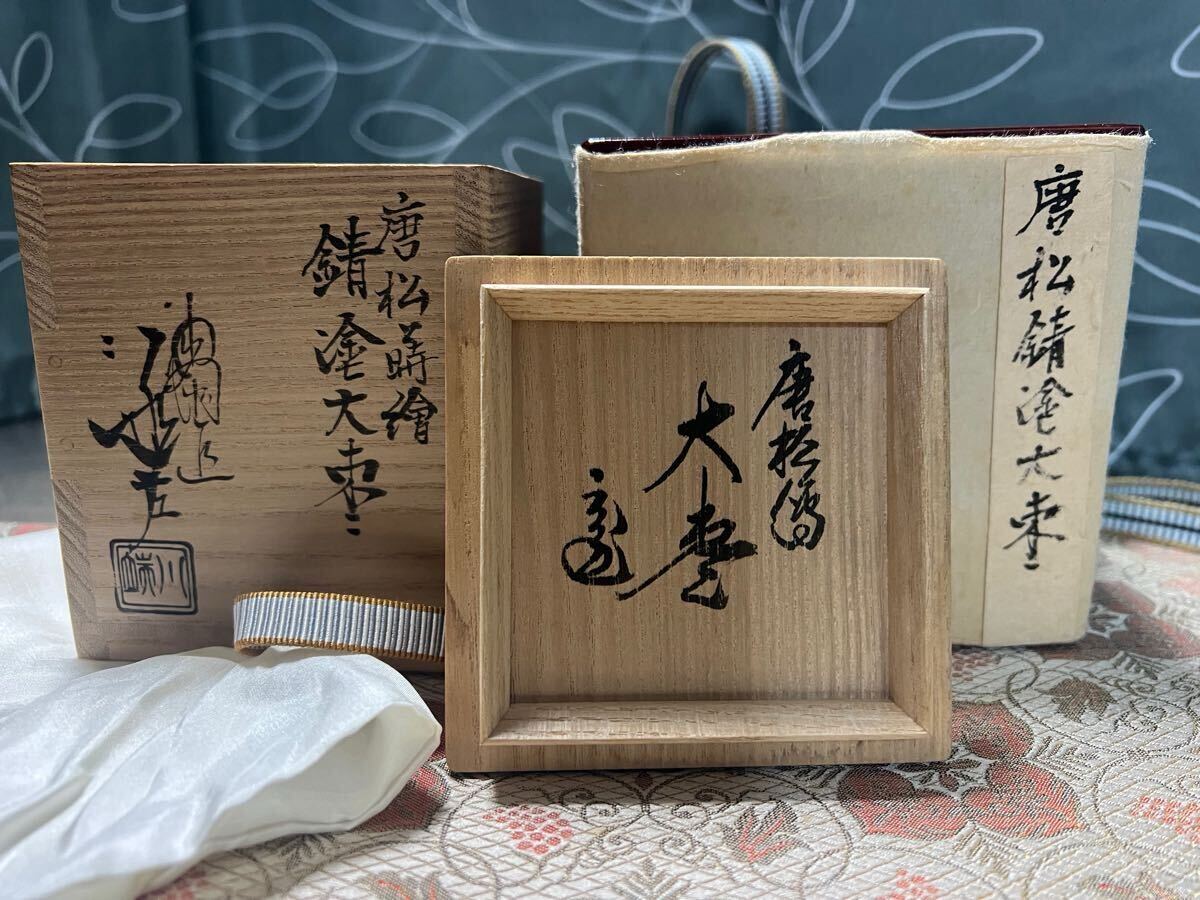 唐松蒔繪
錆塗大棗
川端
唐松繪
大棗
唐松錆塗大棗